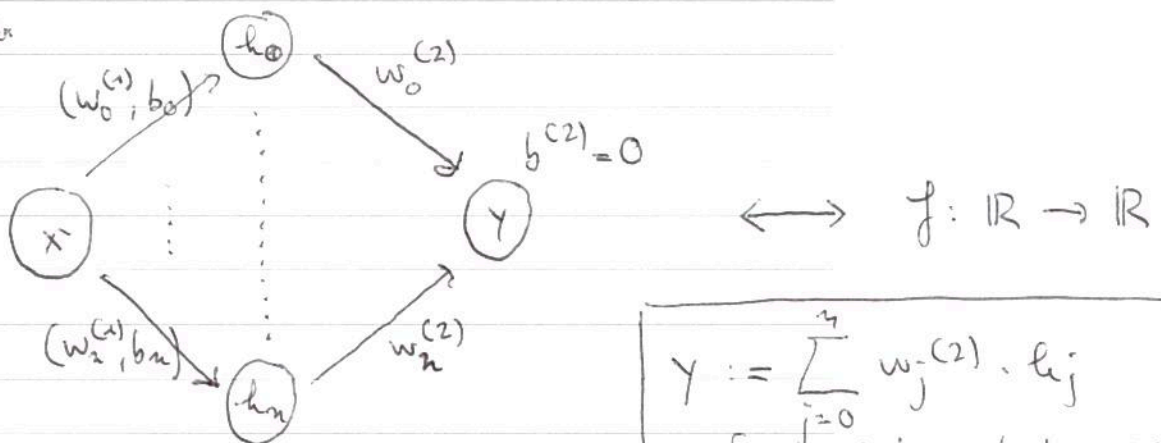 h₀
(w₀⁽¹⁾, b₀)
w₀⁽²⁾
b⁽²⁾ = 0
x
y
⟷ f: ℝ → ℝ
(wₙ⁽¹⁾, bₙ)
wₙ⁽²⁾
hₙ
y := ∑_{j=0}^{n} wⱼ⁽²⁾ · hⱼ